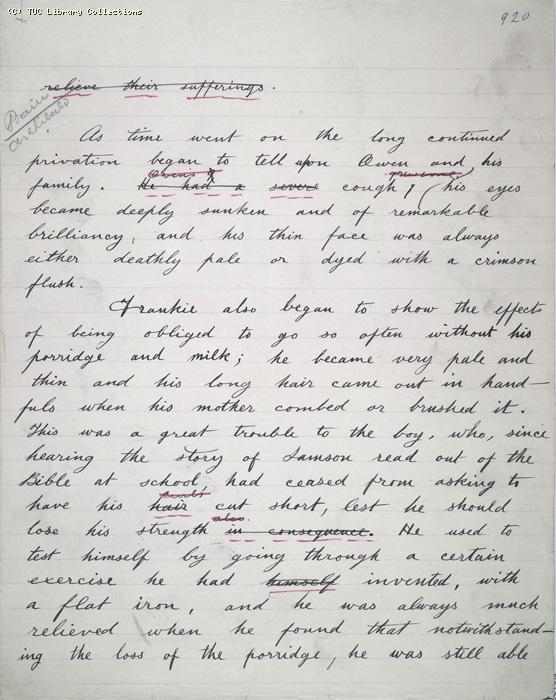 (C) TUC Library Collections
920
relieve their sufferings.
As time went on the long continued
privation began to tell upon Owen and his
Owen's
family. He had a severe cough; his eyes
became deeply sunken and of remarkable
brilliancy, and his thin face was always
either deathly pale or dyed with a crimson
flush.
Frankie also began to show the effects
of being obliged to go so often without his
porridge and milk; he became very pale and
thin and his long hair came out in hand-
fuls when his mother combed or brushed it.
This was a great trouble to the boy, who, since
hearing the story of Samson read out of the
Bible at school, had ceased from asking to
curls
have his hair cut short, lest he should
also.
lose his strength in consequence. He used to
test himself by going through a certain
exercise he had himself invented, with
a flat iron, and he was always much
relieved when he found that notwithstand-
ing the loss of the porridge, he was still able